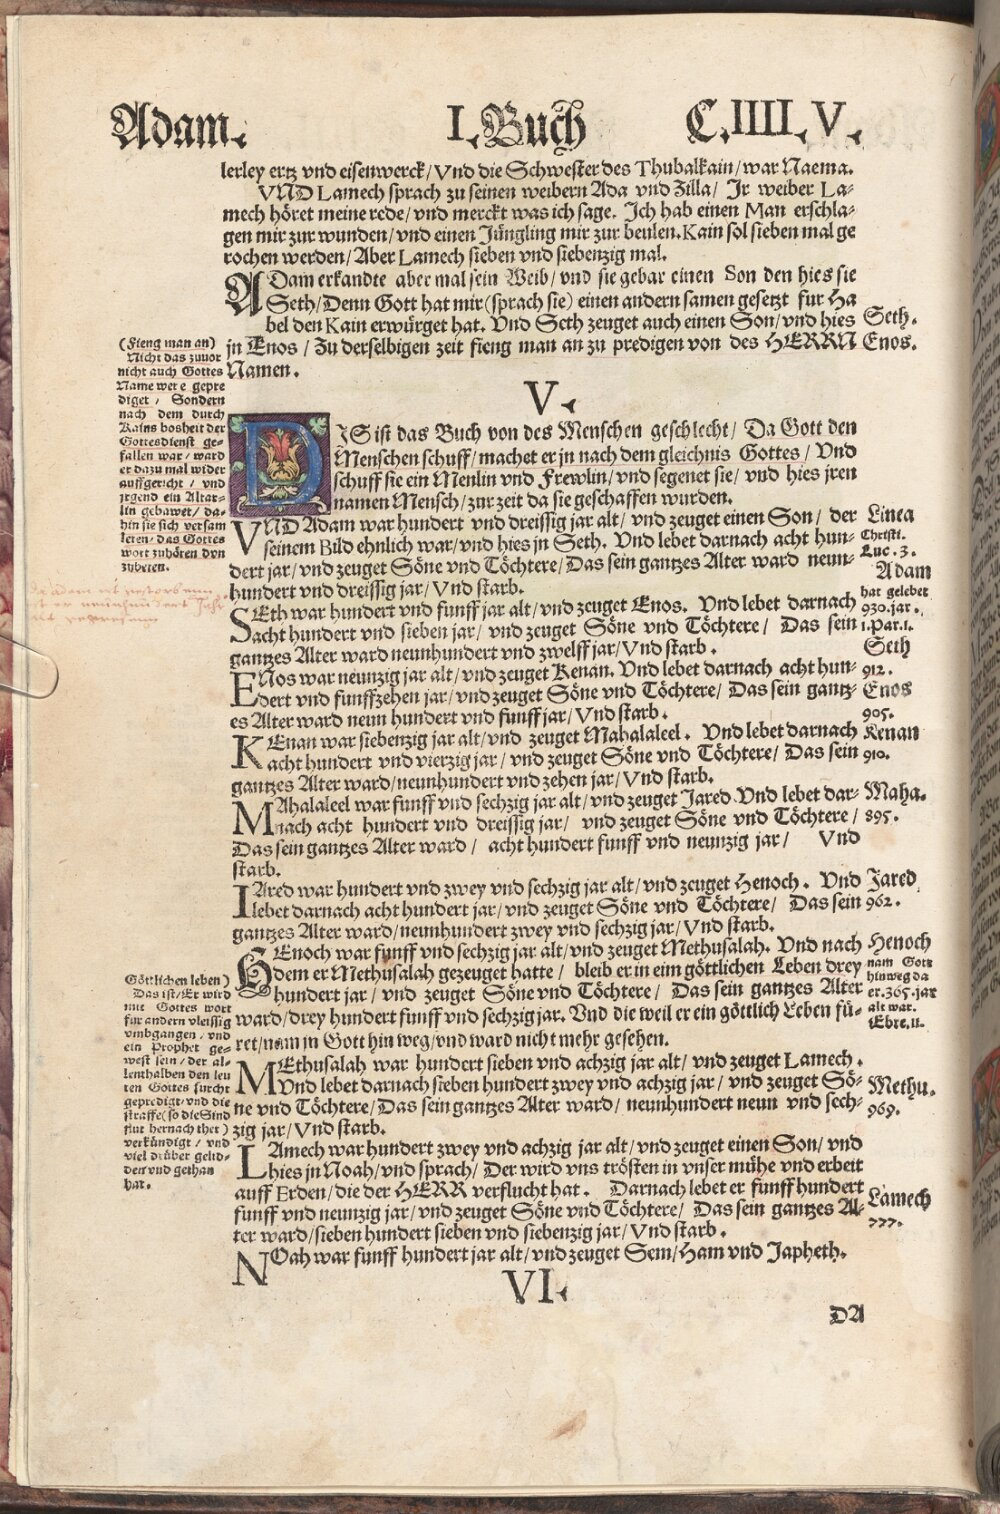 Adam. I. Buch C. IIII. V.
lerley ertz vnd eisenwerck/Vnd die Schwester des Thubalkain/war Naema.
VND Lamech sprach zu seinen weibern Ada vnd Zilla/ Jr weiber La-
mech höret meine rede/vnd merckt was ich sage. Ich hab einen Man erschla-
gen mir zur wunden/vnd einen Jüngling mir zur beulen. Kain sol sieben mal ge
rochen werden/Aber Lamech sieben vnd siebenzig mal.
ADam erkandte aber mal sein Weib/vnd sie gebar einen Son den hies sie
Seth/Denn Gott hat mir (sprach sie) einen andern samen gesetzt fur Ha
bel den Kain erwürget hat. Vnd Seth zeuget auch einen Son/vnd hies
jn Enos/Zu derselbigen zeit fieng man an zu predigen von des HERRN
Namen.
Seth.
Enos.
(Fieng man an)
Nicht das zuuor
nicht auch Gottes
Name were gepre
diget/ Sondern
nach dem durch
Kains bosheit der
Gottesdienst ge-
fallen war/ward
er dazu mal wider
auffgericht/vnd
jrgend ein Altar-
lin gebawet/da-
hin sie sich versam
leten/das Gottes
wort zuhören vnn
zubeten.
V.
DIS ist das Buch von des Menschen geschlecht/ Da Gott den
Menschen schuff/machet er jn nach dem gleichnis Gottes/ Vnd
schuff sie ein Menlin vnd Frewlin/vnd segenet sie/vnd hies jren
namen Mensch/zur zeit da sie geschaffen wurden.
VND Adam war hundert vnd dreissig jar alt/vnd zeuget einen Son/ der
seinem Bild ehnlich war/vnd hies jn Seth. Vnd lebet darnach acht hun-
dert jar/vnd zeuget Söne vnd Töchtere/Das sein gantzes Alter ward neun-
hundert vnd dreissig jar/Vnd starb.
Linea
Christi.
Luc. 3.
Adam
hat gelebet
930. jar.
1. Par. 1.
SEth war hundert vnd funff jar alt/vnd zeuget Enos. Vnd lebet darnach
acht hundert vnd sieben jar/ vnd zeuget Söne vnd Töchtere/ Das sein
gantzes Alter ward neunhundert vnd zwelff jar/Vnd starb.
Seth
912.
ENos war neunzig jar alt/vnd zeuget Kenan. Vnd lebet darnach acht hun-
dert vnd funffzehen jar/vnd zeuget Söne vnd Töchtere/ Das sein gantz-
es Alter ward neun hundert vnd funff jar/Vnd starb.
Enos
905.
KEnan war siebenzig jar alt/vnd zeuget Mahalaleel. Vnd lebet darnach
acht hundert vnd vierzig jar/vnd zeuget Söne vnd Töchtere/ Das sein
gantzes Alter ward/neunhundert vnd zehen jar/Vnd starb.
Kenan
910.
MAhalaleel war funff vnd sechzig jar alt/vnd zeuget Jared. Vnd lebet dar-
nach acht hundert vnd dreissig jar/ vnd zeuget Söne vnd Töchtere/
Das sein gantzes Alter ward/ acht hundert funff vnd neunzig jar/ Vnd
starb.
Maha.
895.
IAred war hundert vnd zwey vnd sechzig jar alt/vnd zeuget Henoch. Vnd
lebet darnach acht hundert jar/vnd zeuget Söne vnd Töchtere/ Das sein
gantzes Alter ward/neunhundert zwey vnd sechzig jar/Vnd starb.
Jared
962.
HEnoch war funff vnd sechzig jar alt/vnd zeuget Methusalah. Vnd nach
dem er Methusalah gezeuget hatte/ bleib er in eim göttlichen Leben drey
hundert jar/ vnd zeuget Söne vnd Töchtere/ Das sein gantzes Alter
ward/drey hundert funff vnd sechzig jar. Vnd die weil er ein göttlich Leben fü-
ret/nam jn Gott hin weg/vnd ward nicht mehr gesehen.
Henoch
nam Gott
hinweg da
er. 365. jar
alt war.
Ebre. 11.
Göttlichen leben)
Das ist/Er wird
mit Gottes wort
für andern vleissig
vmbgangen/vnd
ein Prophet ge-
west sein/der al-
lenthalben den leu
ten Gottes furcht
gepredigt/vnd die
straffe(so die Sind
flut hernach thet)
verkündigt/vnd
viel drüber gelid-
den vnd gethan
hat.
MEthusalah war hundert sieben vnd achzig jar alt/vnd zeuget Lamech.
Vnd lebet darnach sieben hundert zwey vnd achzig jar/vnd zeuget Sö-
ne vnd Töchtere/Das sein gantzes Alter ward/ neunhundert neun vnd sech-
zig jar/Vnd starb.
Methu.
969.
LAmech war hundert zwey vnd achzig jar alt/vnd zeuget einen Son/vnd
hies jn Noah/vnd sprach/ Der wird vns trösten in vnser mühe vnd erbeit
auff Erden/die der HERR verflucht hat. Darnach lebet er funff hundert
funff vnd neunzig jar/vnd zeuget Söne vnd Töchtere/ Das sein gantzes Al-
ter ward/sieben hundert sieben vnd siebenzig jar/Vnd starb.
Lamech
777.
NOah war funff hundert jar alt/vnd zeuget Sem/Ham vnd Japheth.
VI.
DA